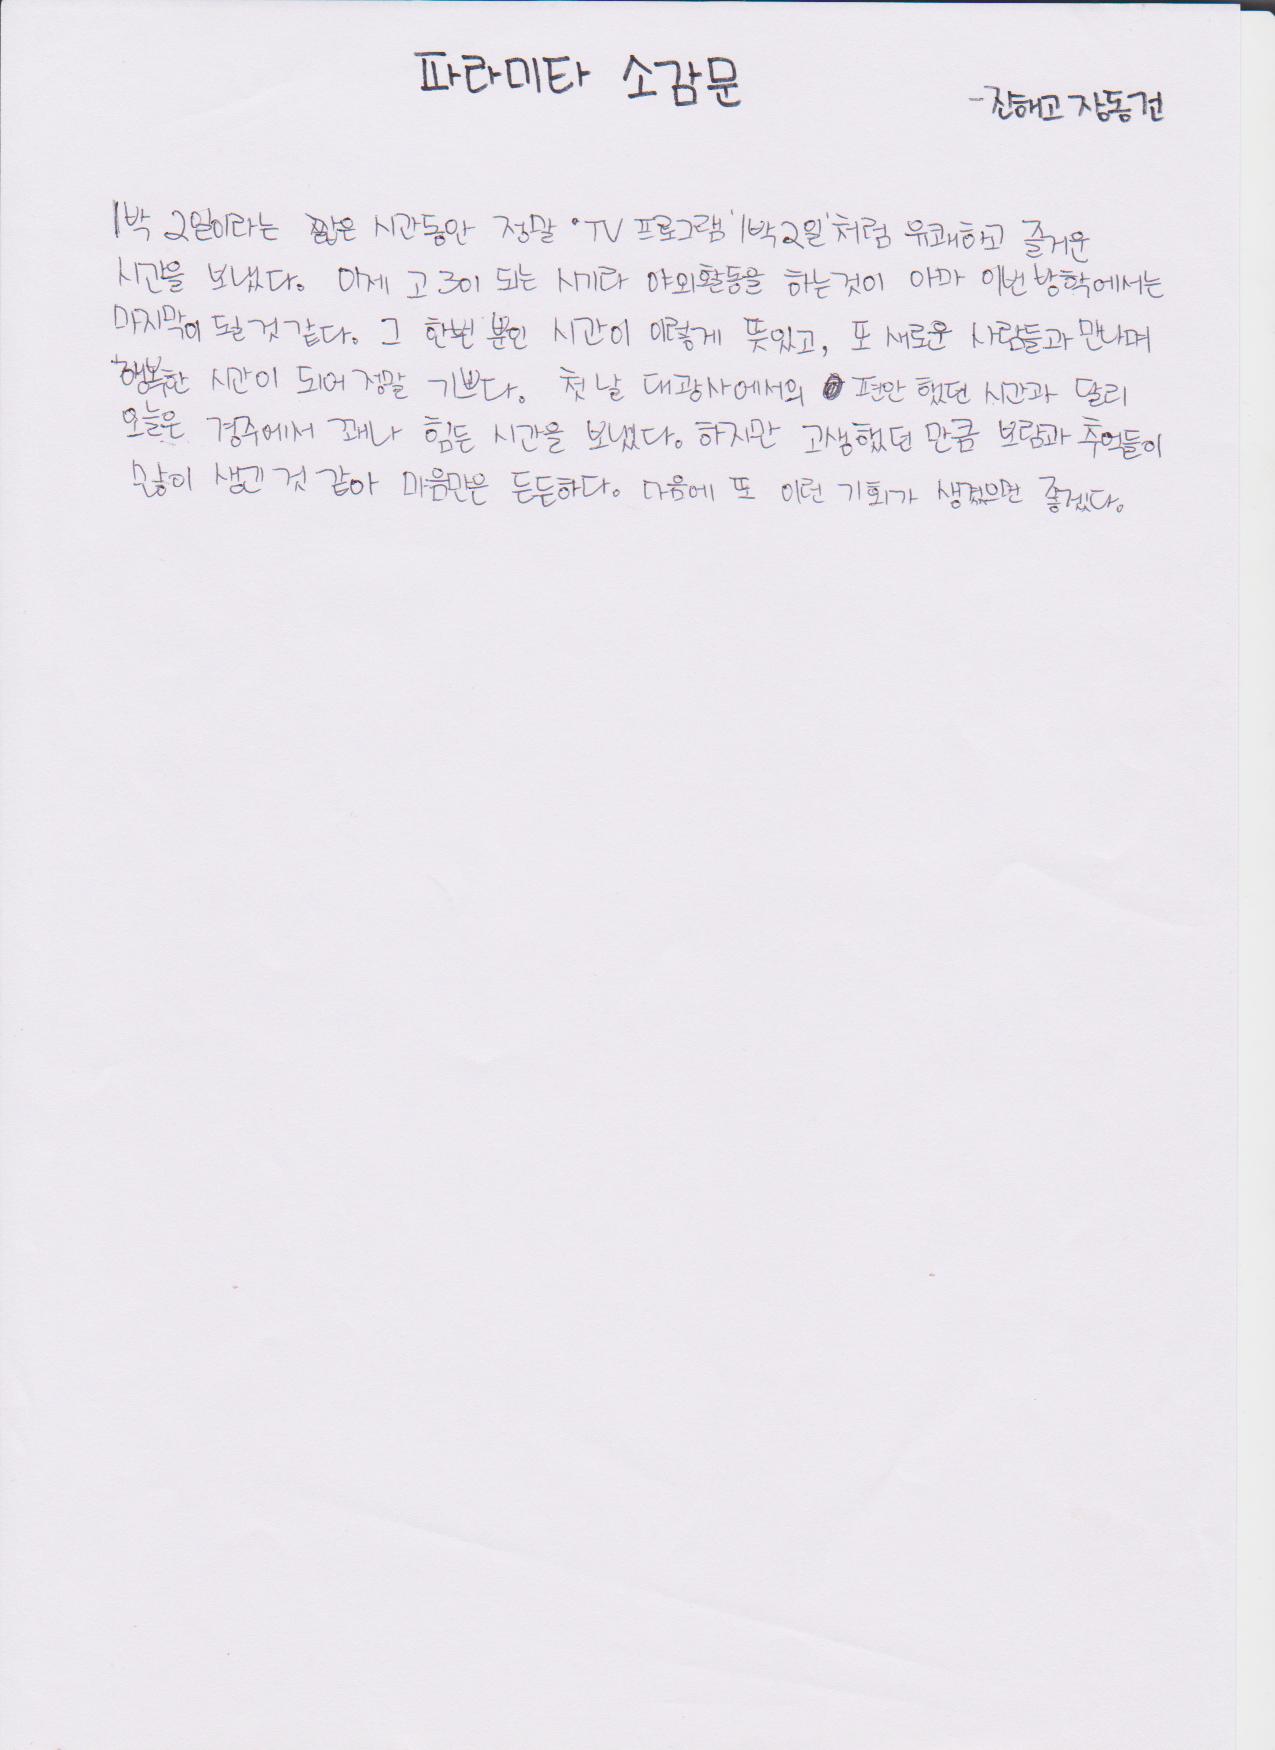 파라미타 소감문
-진해고 장동건
1박 2일이라는 짧은 시간동안 정말 TV 프로그램 '1박2일'처럼 유쾌하고 즐거운
시간을 보냈다. 이제 고3이 되는 시기라 야외활동을 하는것이 아마 이번 방학에서는
마지막이 될 것 같다. 그 한번 뿐인 시간이 이렇게 뜻있고, 또 새로운 사람들과 만나며
행복한 시간이 되어 정말 기쁘다. 첫 날 대광사에서의 편안 했던 시간과 달리
오늘은 경주에서 꽤나 힘든 시간을 보냈다. 하지만 고생했던 만큼 보람과 추억들이
많이 생긴 것 같아 마음만은 든든하다. 다음에 또 이런 기회가 생겼으면 좋겠다.